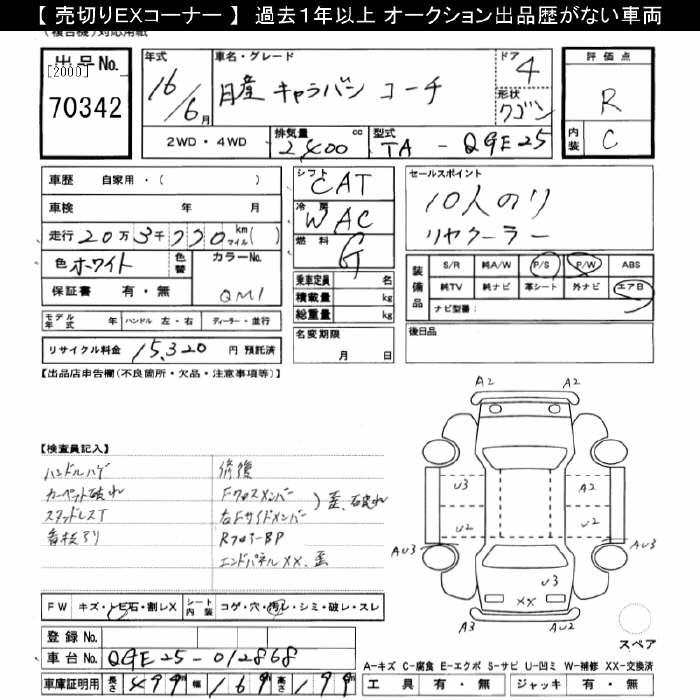 【 売切りEXコーナー 】 過去1年以上 オークション出品歴がない車両
出品No.
[2000]
70342
年式
16/6月
車名・グレード
日産 キャラバン コーチ
ドア
4
形状
ワゴン
評価点
R
内装
C
2WD・4WD
排気量 cc
2400
型式
TA - QGE25
車歴 自家用・( )
車検 年 月
走行 20万3千770 km マイル( )
色 ホワイト
色替
カラーNo.
QM1
保証書 有・無
シフト
CAT
冷房
WAC
燃料
G
乗車定員 名
積載量 kg
総重量 kg
名変期限
月 日
セールスポイント
10人のり
リヤクーラー
装備品
S/R 純A/W P/S P/W ABS
純TV 純ナビ 革シート 外ナビ エアB
ナビ型番:
後日品
モデル年式 年 ハンドル 左・右 ディーラー・並行
リサイクル料金 15,320 円 預託済
【出品店申告欄(不良箇所・欠品・注意事項等)】
【検査員記入】
ハンドルハゲ
カーペット破れ
スタッドレスT
修復
Fクロスメンバー
右Fサイドメンバー
エンドパネルXX、歪
A2 A2
U3 A2
U2 U2
AU3 AU3
U3
XX
A3 AU2
スペア
FW キズ・トビ石・割レX
シート内装 コゲ・穴・汚レ・シミ・破レ・スレ
登録No.
車台No. QGE25-012868
車庫証明用 長さ 499 幅 169 高さ 199
A-キズ C-腐食 E-エクボ S-サビ U-凹ミ W-補修 XX-交換済
工具 有・無 ジャッキ 有・無